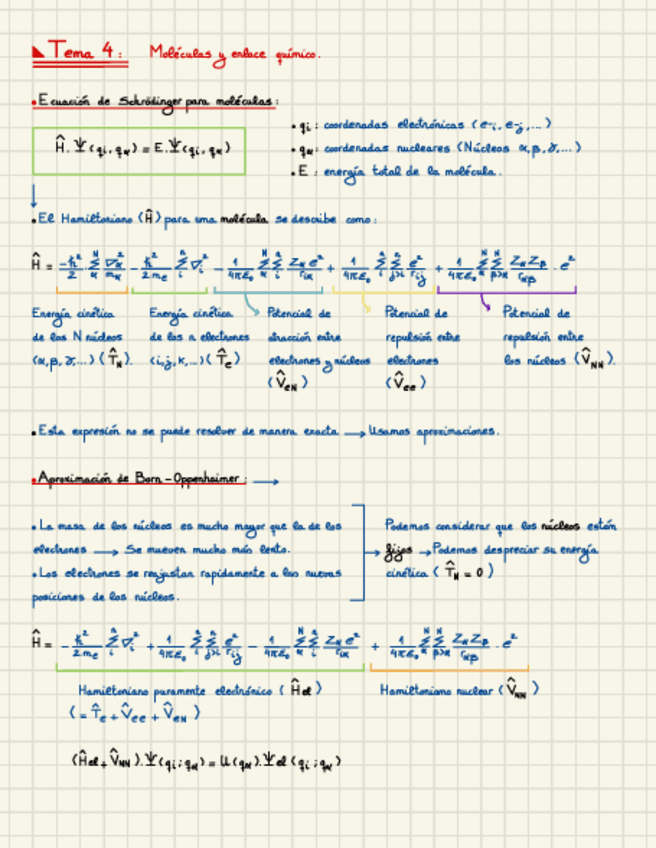 Tema 4: Moléculas y enlace químico.
• Ecuación de Schrödinger para moléculas:
Ĥ. Ψ(qi, qα) = E. Ψ(qi, qα)
• qi: coordenadas electrónicas (e-i, e-j,...)
• qα: coordenadas nucleares (Núcleos α, β, γ,...)
• E: energía total de la molécula.
• El Hamiltoniano (Ĥ) para una molécula se describe como:
Ĥ = -ħ²/2 Σα^N ∇α²/mα - ħ²/2me Σi^n ∇i² - 1/4πε₀ Σα^N Σi^n Zα e²/riα + 1/4πε₀ Σi^n Σj>i^n e²/rij + 1/4πε₀ Σα^N Σβ>α^N Zα Zβ/rαβ · e²
Energía cinética de los N núcleos (α, β, γ,...) (T̂N).
Energía cinética de los n electrones (i, j, k,...) (T̂e)
Potencial de atracción entre electrones y núcleos (V̂eN)
Potencial de repulsión entre electrones (V̂ee)
Potencial de repulsión entre los núcleos (V̂NN).
• Esta expresión no se puede resolver de manera exacta → Usamos aproximaciones.
• Aproximación de Born-Oppenheimer: →
• La masa de los núcleos es mucho mayor que la de los
electrones → Se mueven mucho más lento.
• Los electrones se reajustan rapidamente a las nuevas
posiciones de los núcleos.
Podemos considerar que los núcleos están
fijos → Podemos despreciar su energía
cinética (T̂N = 0)
Ĥ = -ħ²/2me Σi^n ∇i² + 1/4πε₀ Σi^n Σj>i^n e²/rij - 1/4πε₀ Σα^N Σi^n Zα e²/riα + 1/4πε₀ Σα^N Σβ>α^N Zα Zβ/rαβ · e²
Hamiltoniano puramente electrónico (Ĥel)
(= T̂e + V̂ee + V̂eN)
Hamiltoniano nuclear (V̂NN)
(Ĥel + V̂NN). Ψ(qi; qα) = U(qα). Ψel(qi; qα)